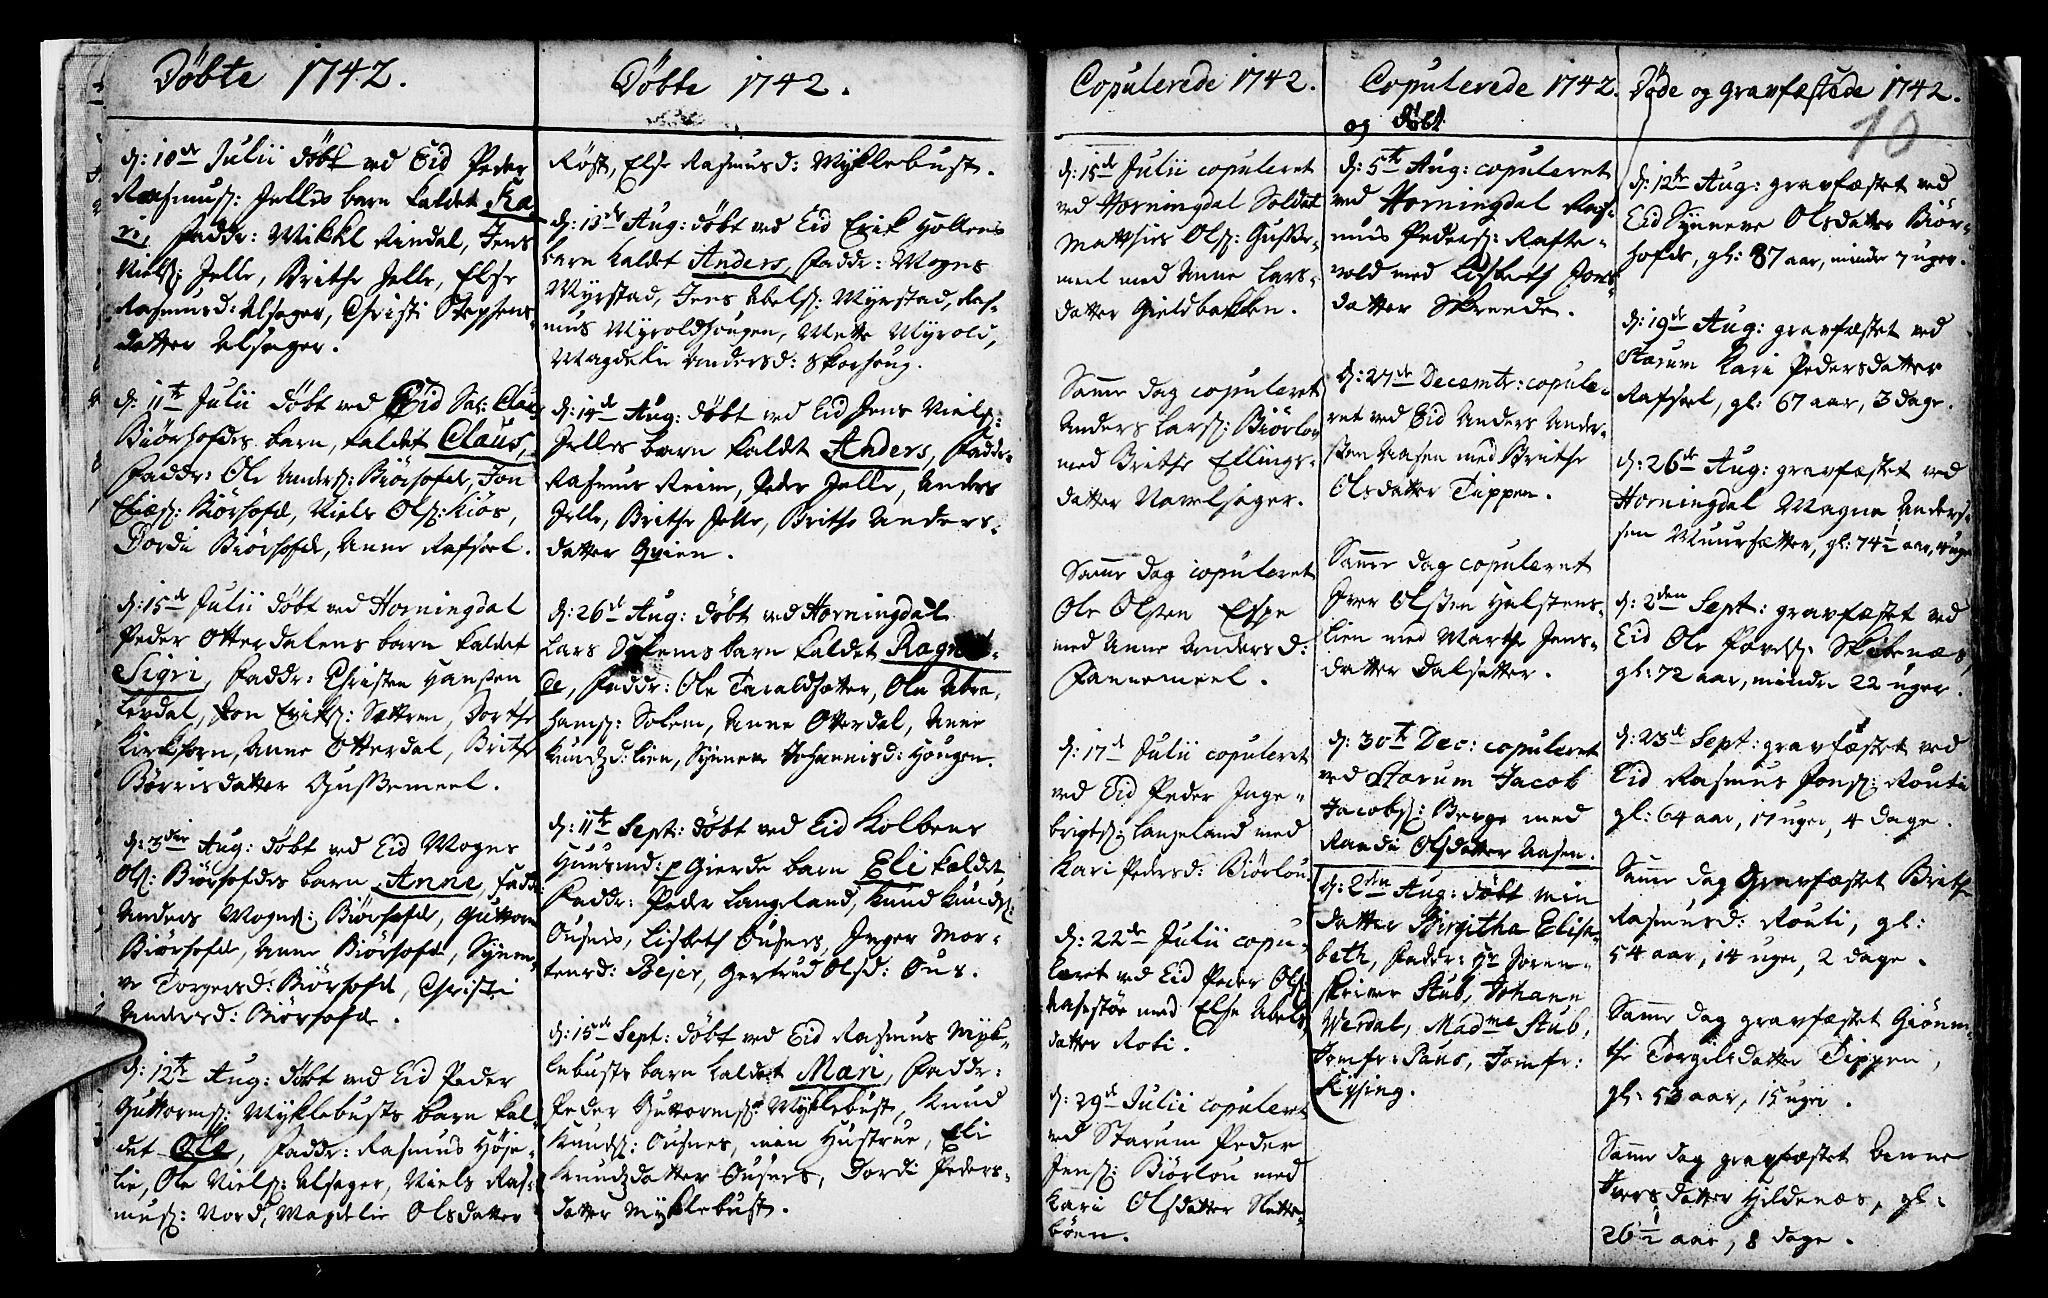 Döbte 1742.
d: 10de Julii döbt ved Eid Peder
Rasmusß: Jelles barn kaldet Ka-
ri, Fadd: Mikkl Rindal, Jens
Nielsß: Jelle, Brithe Jelle, Else
Rasmusd: Alsager, Christi Stephens-
datter Alsager.
d: 11te Julii döbt ved Eid Sal: Claus
Biörhofdes barn, kaldet Claus,
Fadd: Ole Andersß: Biörhofde, Jon
Biörhofde, Niels Olsß: Kiös,
Dordi Biörhofde, Anne Rafshol.
d: 15de Julii döbt ved Horningdal
Peder Otterdalens barn kaldet
Sigri, Fadd: Christen Hanßen
Levdal, Jon Erichsß: Sættren, Dorthe
Kirkhorn, Anne Otterdal, Brithe
Börrisdatter Gußemeel.
d: 3die Aug: döbt ved Eid Mogns
Olsß: Biörhofdes barn Anne, Fadd:
Anders Mognsß: Biörhofde, Guttorm
Biörhofde, Anne Biörhofde, Synne-
ve Torgersd: Biörhofde, Christi
Andersd: Biörhofde.
d: 12te Aug: döbt ved Eid Peder
Guttormsß: Myklebusts barn kal-
det Ole, Fadd: Rasmus Höje-
lie, Ole Nielsß: Alsager, Niels Ras-
musß: Nord, Magdelie Olsdatter
Döbte 1742.
Röst, Else Rasmusd: Myklebust.
d: 13de Aug: döbt ved Eid Erik Holtens
barn kaldet Anders, Fadd: Mogns
Myrstad, Jens Abelsß: Myrstad, Ras-
mus Myroldhougen, Mette Myrold,
Magdelie Andersd: Skorhoug.
d: 14de Aug: döbt ved Eid Jens Nielsß:
Jelles barn kaldt Anders, Fadd:
Rasmus Reim, Peder Jelle, Anders
Jelle, Brithe Jelle, Brithe Anders-
datter Hvien.
d: 26de Aug: döbt ved Horningdal
Lars Solems barn kaldet Ragnil-
de, Fadd: Ole Taraldsætter, Ole Abra-
hamsß: Solem, Anne Otterdal, Anne
Knudzd: Lien, Synneve Johannisd: Hougen.
d: 11te Sept: döbt ved Eid Kolbens
Huusmd: p Gierde barn Eli kaldet,
Fadd: Peder Langeland, Knud Knudsß:
Ousnes, Lisbeth Ousnes, Inger Mor-
tensd: Bejer, Gertrud Olsd: Ous.
d: 15de Sept: döbt ved Eid Rasmus Myk-
lebusts barn kaldet Mari, Fadd:
Peder Guttormsß: Myklebust, Knud
Knudsß: Ousnes, min Hustrue, Eli
Knudzdatter Ousnes, Dordi Peders-
datter Myklebust.
Copulerede 1742.
d: 15de Julii copuleret
ved Horningdal Soldat
Matthies Olsß: Gusße-
meel med Anne Lars-
datter Gieldbakken.
Samme dag copuleret
Anders Larsß: Biörlou
med Brithe Ellings-
datter Navelsager.
Samme dag copuleret
Ole Olsen Espe
med Anne Andersd:
Fannemeel.
d: 17de Julii copuleret
ved Eid Peder Inge-
brigtsß: Langeland med
Kari Pedersd: Biörlou
d: 22de Julii copu-
leret ved Eid Peder Olsß:
Nasestöe med Else Abels-
datter Roti.
d: 29de Julii copuleret
ved Starum Peder
Jensß: Biörlou med
Kari Olsdatter Slette-
böen.
Copulerede 1742.
og döbt
d: 5te Aug: copuleret
ved Horningdal Ras-
mus Pedersß: Rafte-
vold med Lisbeth Jons-
datter Skrende.
d: 27de Decembr: copule-
ret ved Eid Anders Ander-
sen Aasen med Brithe
Olsdatter Tippen.
Samme dag copuleret
Iver Olsen Halstens-
lien med Marthe Jens-
datter Dalsetter.
d: 30te Dec: copuleret
ved Starum Jacob
Jacobsß: Berge med
Randi Olsdatter Aasen.
d: 2den Aug: döbt min
datter Birgitha Elisa-
beth, Fadd: Hr Soren-
skriver Stub, Johann
Werdal, Madme Stub,
Jomfr: Paus, Jomfr:
Kysing.
Döde og gravfæstede 1742.
10
d: 12te Aug: gravfæstet ved
Eid Synneve Olsdatter Biör-
hofde, gl: 87 aar, minder 7 uger.
d: 19de Aug: gravfæstet ved
Starum Kari Pedersdatter
Rafshol, gl: 67 aar, 3 dage.
d: 26de Aug: gravfæstet ved
Horningdal Magne Anders-
sen Muursetter, gl: 74 1/2 aar, 4 uger
d: 2den Sept: gravfæstet ved
Eid Ole Povelsß: Skibenæs,
gl: 72 aar, mindre 22 uger.
d: 23de Sept: gravfæstet ved
Eid Rasmus Jonsß: Routi
gl: 64 aar, 17 uger, 4 dage.
Samme dag Gravfæstet Brithe
Rasmusd: Routi, gl:
54 aar, 14 uger, 2 dage.
Samme dag gravfæstet Giönne-
the Torgilsdatter Tippen,
gl: 53 aar, 15 uger.
Samme dag gravfæstet
Iversdatter Hildenæs, gl:
26 1/2 aar, 8 dage.